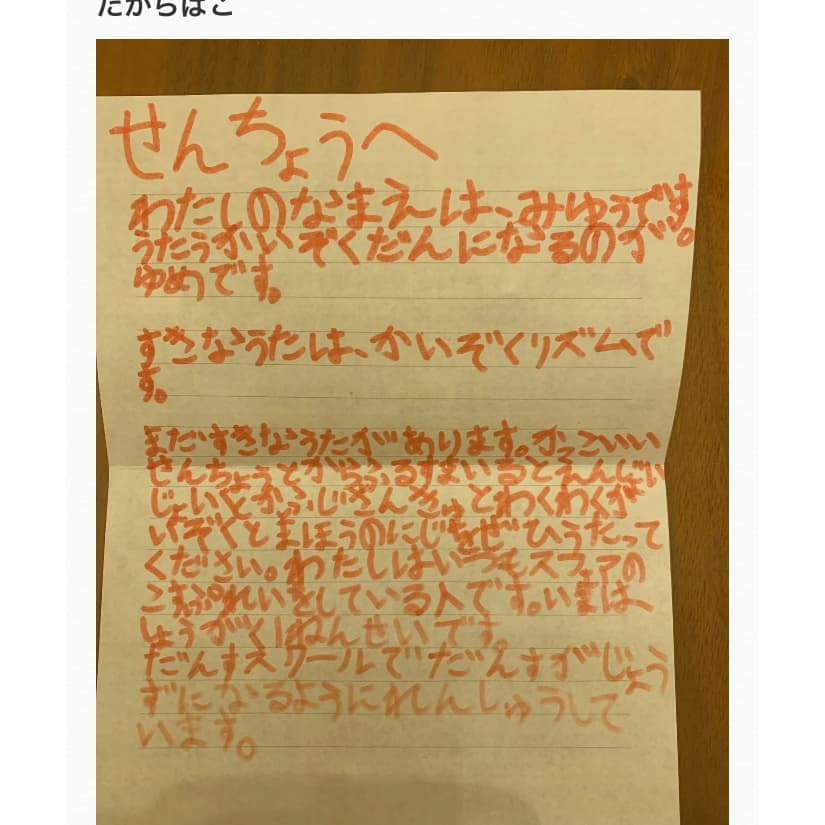 たからばこ
せんちょうへ
わたしのなまえは、みゆうです。
うたうかいぞくだんになるのが
ゆめです。
すきなうたは、かいぞくリズムで
す。
まだすきなうたがあります。かっこいい
せんちょうとからふるすまいるとえんじょい
じょいとかふじさんきゅとわくわくか
いぞくとまほうのにじをぜひうたって
ください。わたしはいつもスファの
こすぷれいをしている人です。いまは、
しょうがく1ねんせいです。
だんすスクールでだんすがじょう
ずになるようにれんしゅうして
います。